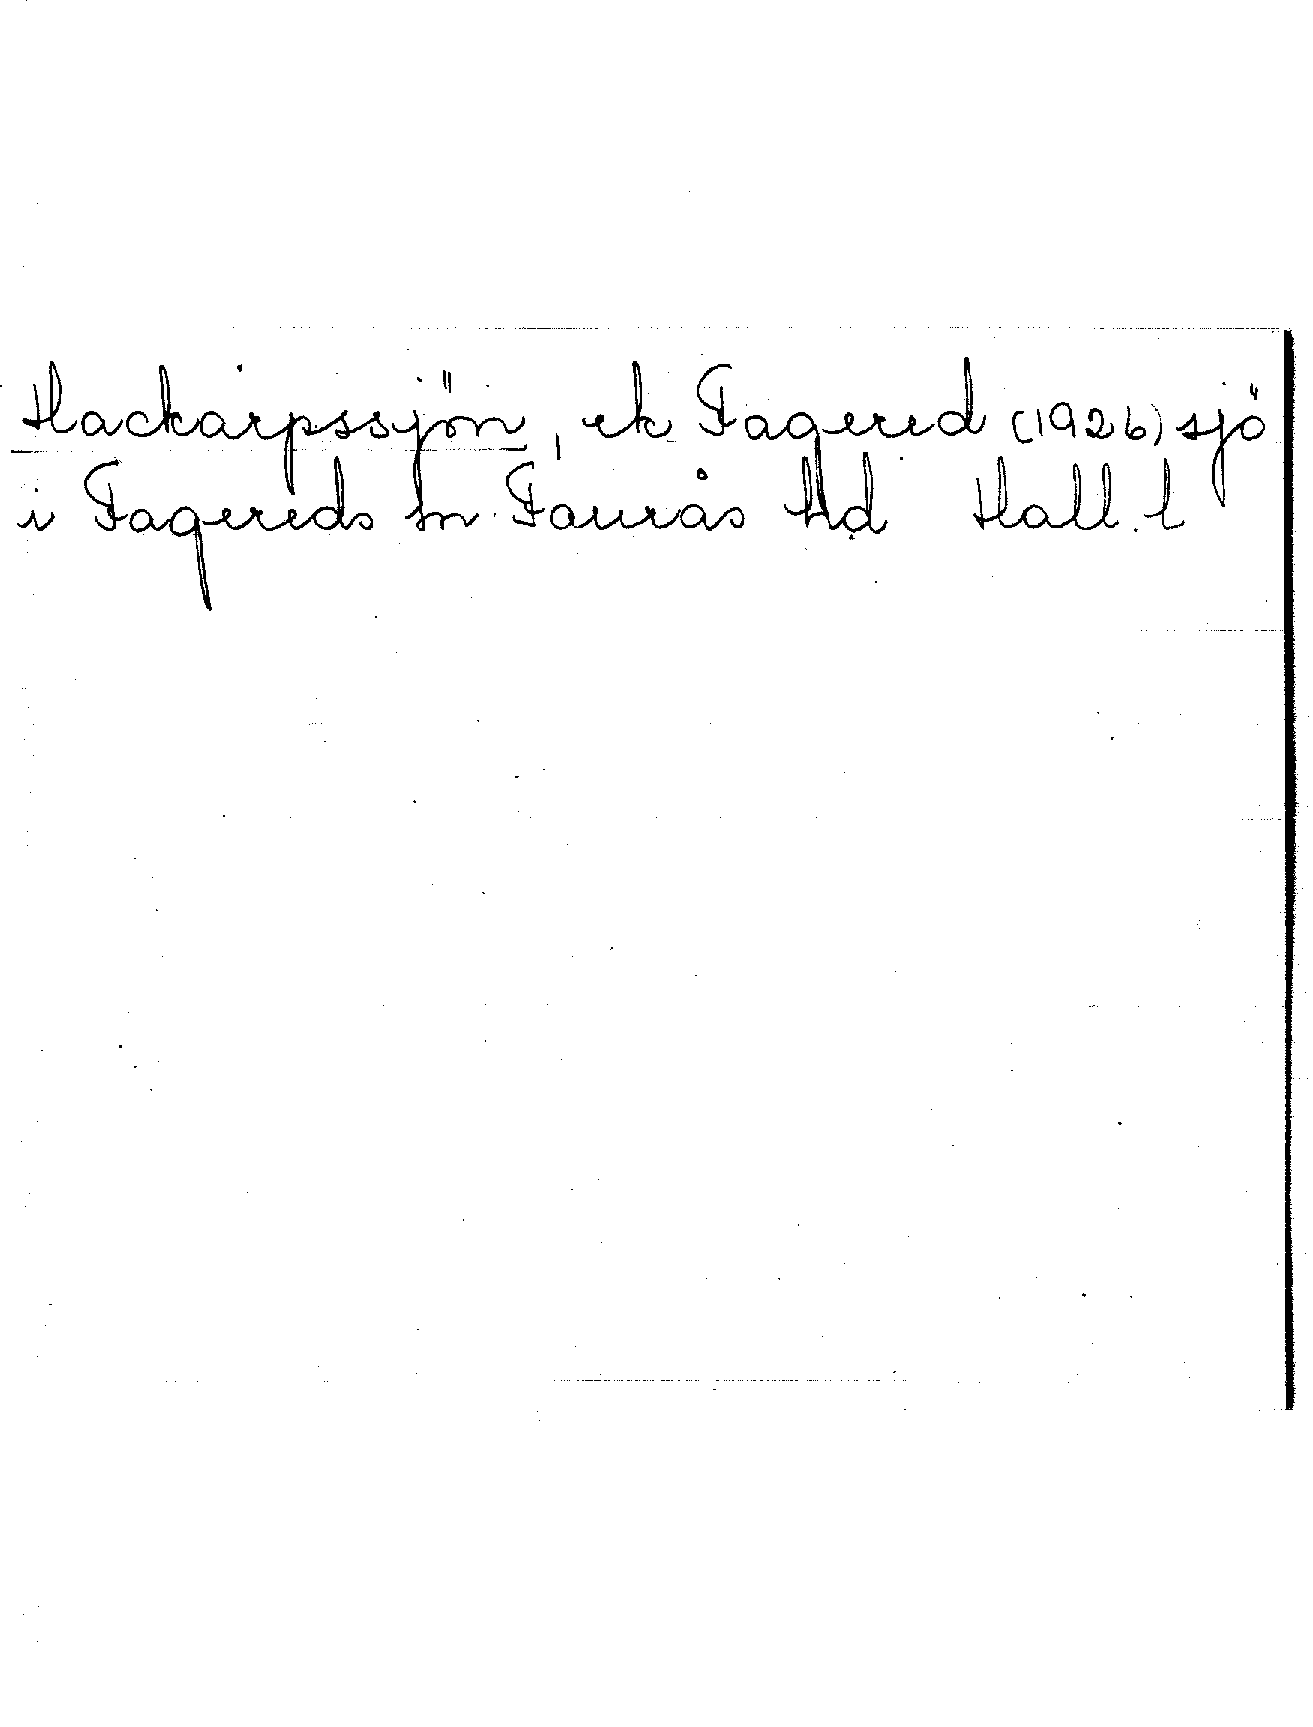 Hackarpssjön, ek Fagered (1926) sjö
i Fagereds sn. Faurås hd Hall. l